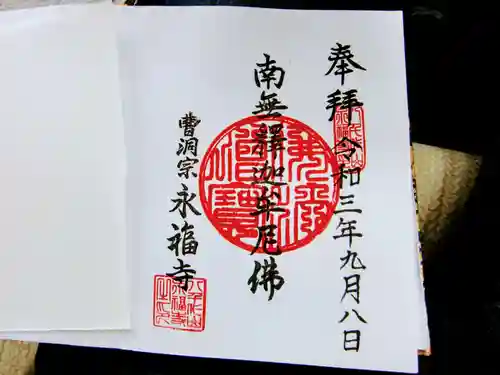 奉拝 令和三年九月八日
南無釋迦牟尼佛
曹洞宗 永福寺